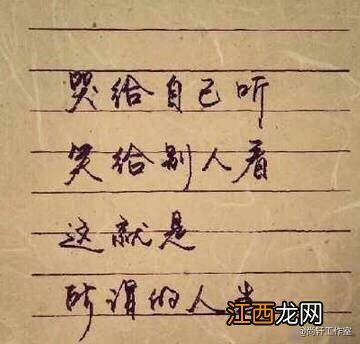 哭给自己听
笑给别人看
这就是
所谓的人生
江西龙网
@尚轩工作室